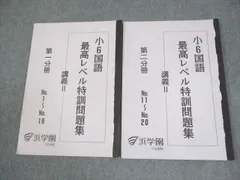 小6国語
最高レベル特訓問題集
講義Ⅱ
第一分冊
No.1～No.10
浜学園
小6国語
最高レベル特訓問題集
講義Ⅱ
第二分冊
No.11～No.20
浜学園